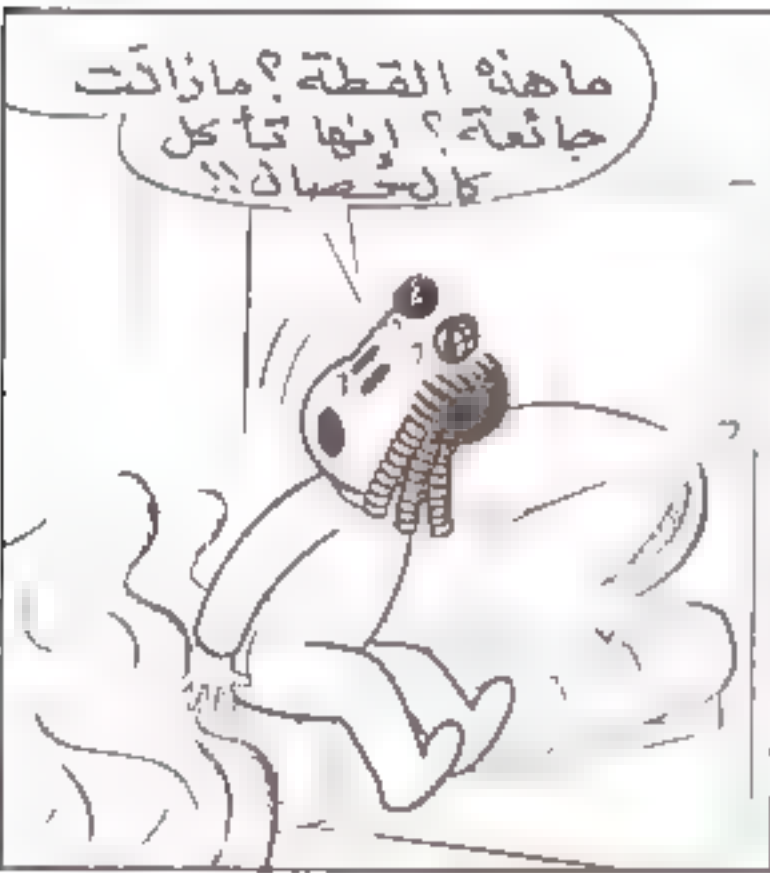 ما هذه القطة؟ مازالت
جائعة؟ إنها تأكل
كالحصان!!